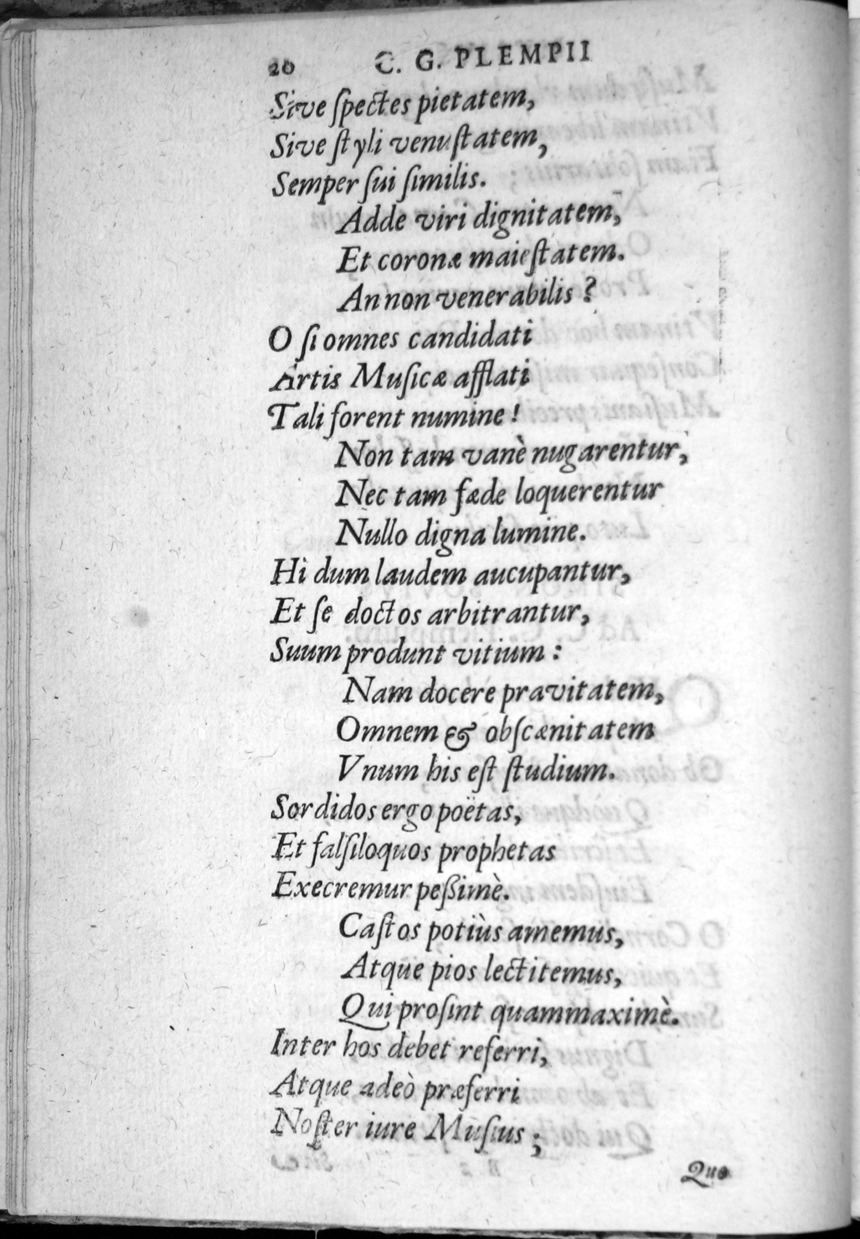 20 C. G. PLEMPII
Sive ſpectes pietatem,
Sive ſtyli venuſtatem,
Semper ſui ſimilis.
Adde viri dignitatem,
Et coronæ maieſtatem.
An non venerabilis?
O ſi omnes candidati
Artis Muſicæ afflati
Tali forent numine!
Non tam vanè nugarentur,
Nec tam fæde loquerentur
Nullo digna lumine.
Hi dum laudem aucupantur,
Et ſe doctos arbitrantur,
Suum produnt vitium:
Nam docere pravitatem,
Omnem & obſcænitatem
Vnum his eſt ſtudium.
Sordidos ergo poëtas,
Et falſiloquos prophetas
Execremur peßimè.
Caſtos potiùs amemus,
Atque pios lectitemus,
Qui proſint quammaximè.
Inter hos debet referri,
Atque adeò præferri
Noſter iure Muſius;
Quo